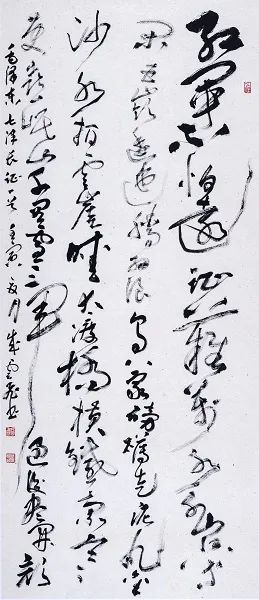 红軍不怕遠征難萬水千山只等
闲五嶺逶迤腾细浪乌蒙磅礴走泥丸金
沙水拍雲崖暖大渡橋横鐵索寒
更喜岷山千里雪三軍过後尽开颜
毛泽东七律长征一首壬寅 月 书